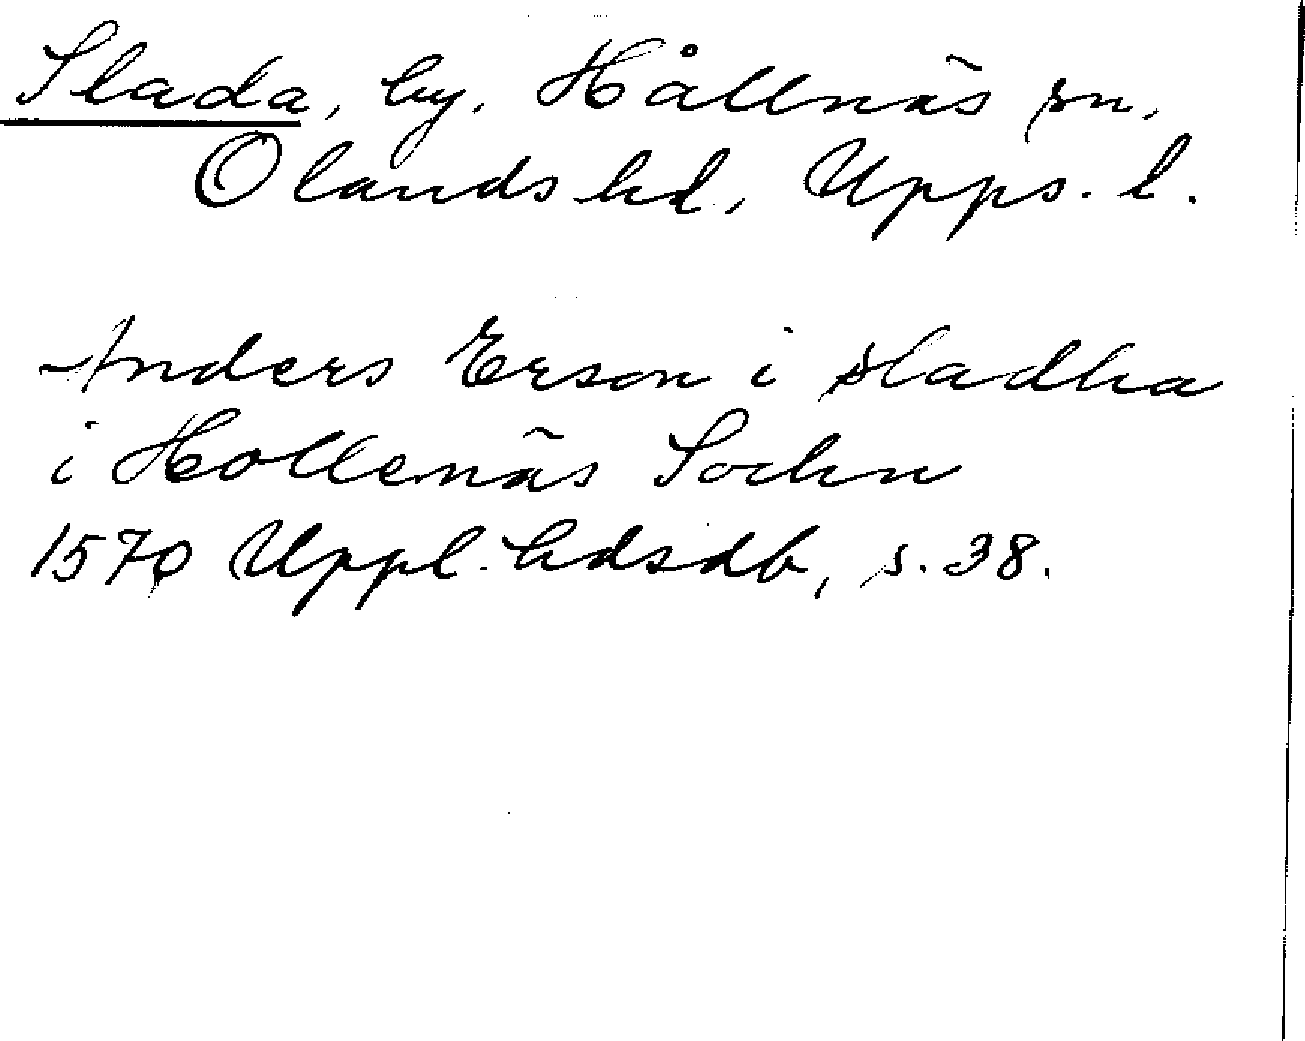 Slada, by. Hållnäs sn.
Olands hd, Upps. l.
Anders Erson i sladha
i Hollenäs Sochn
1570 Uppl. hdsdb, s. 38.